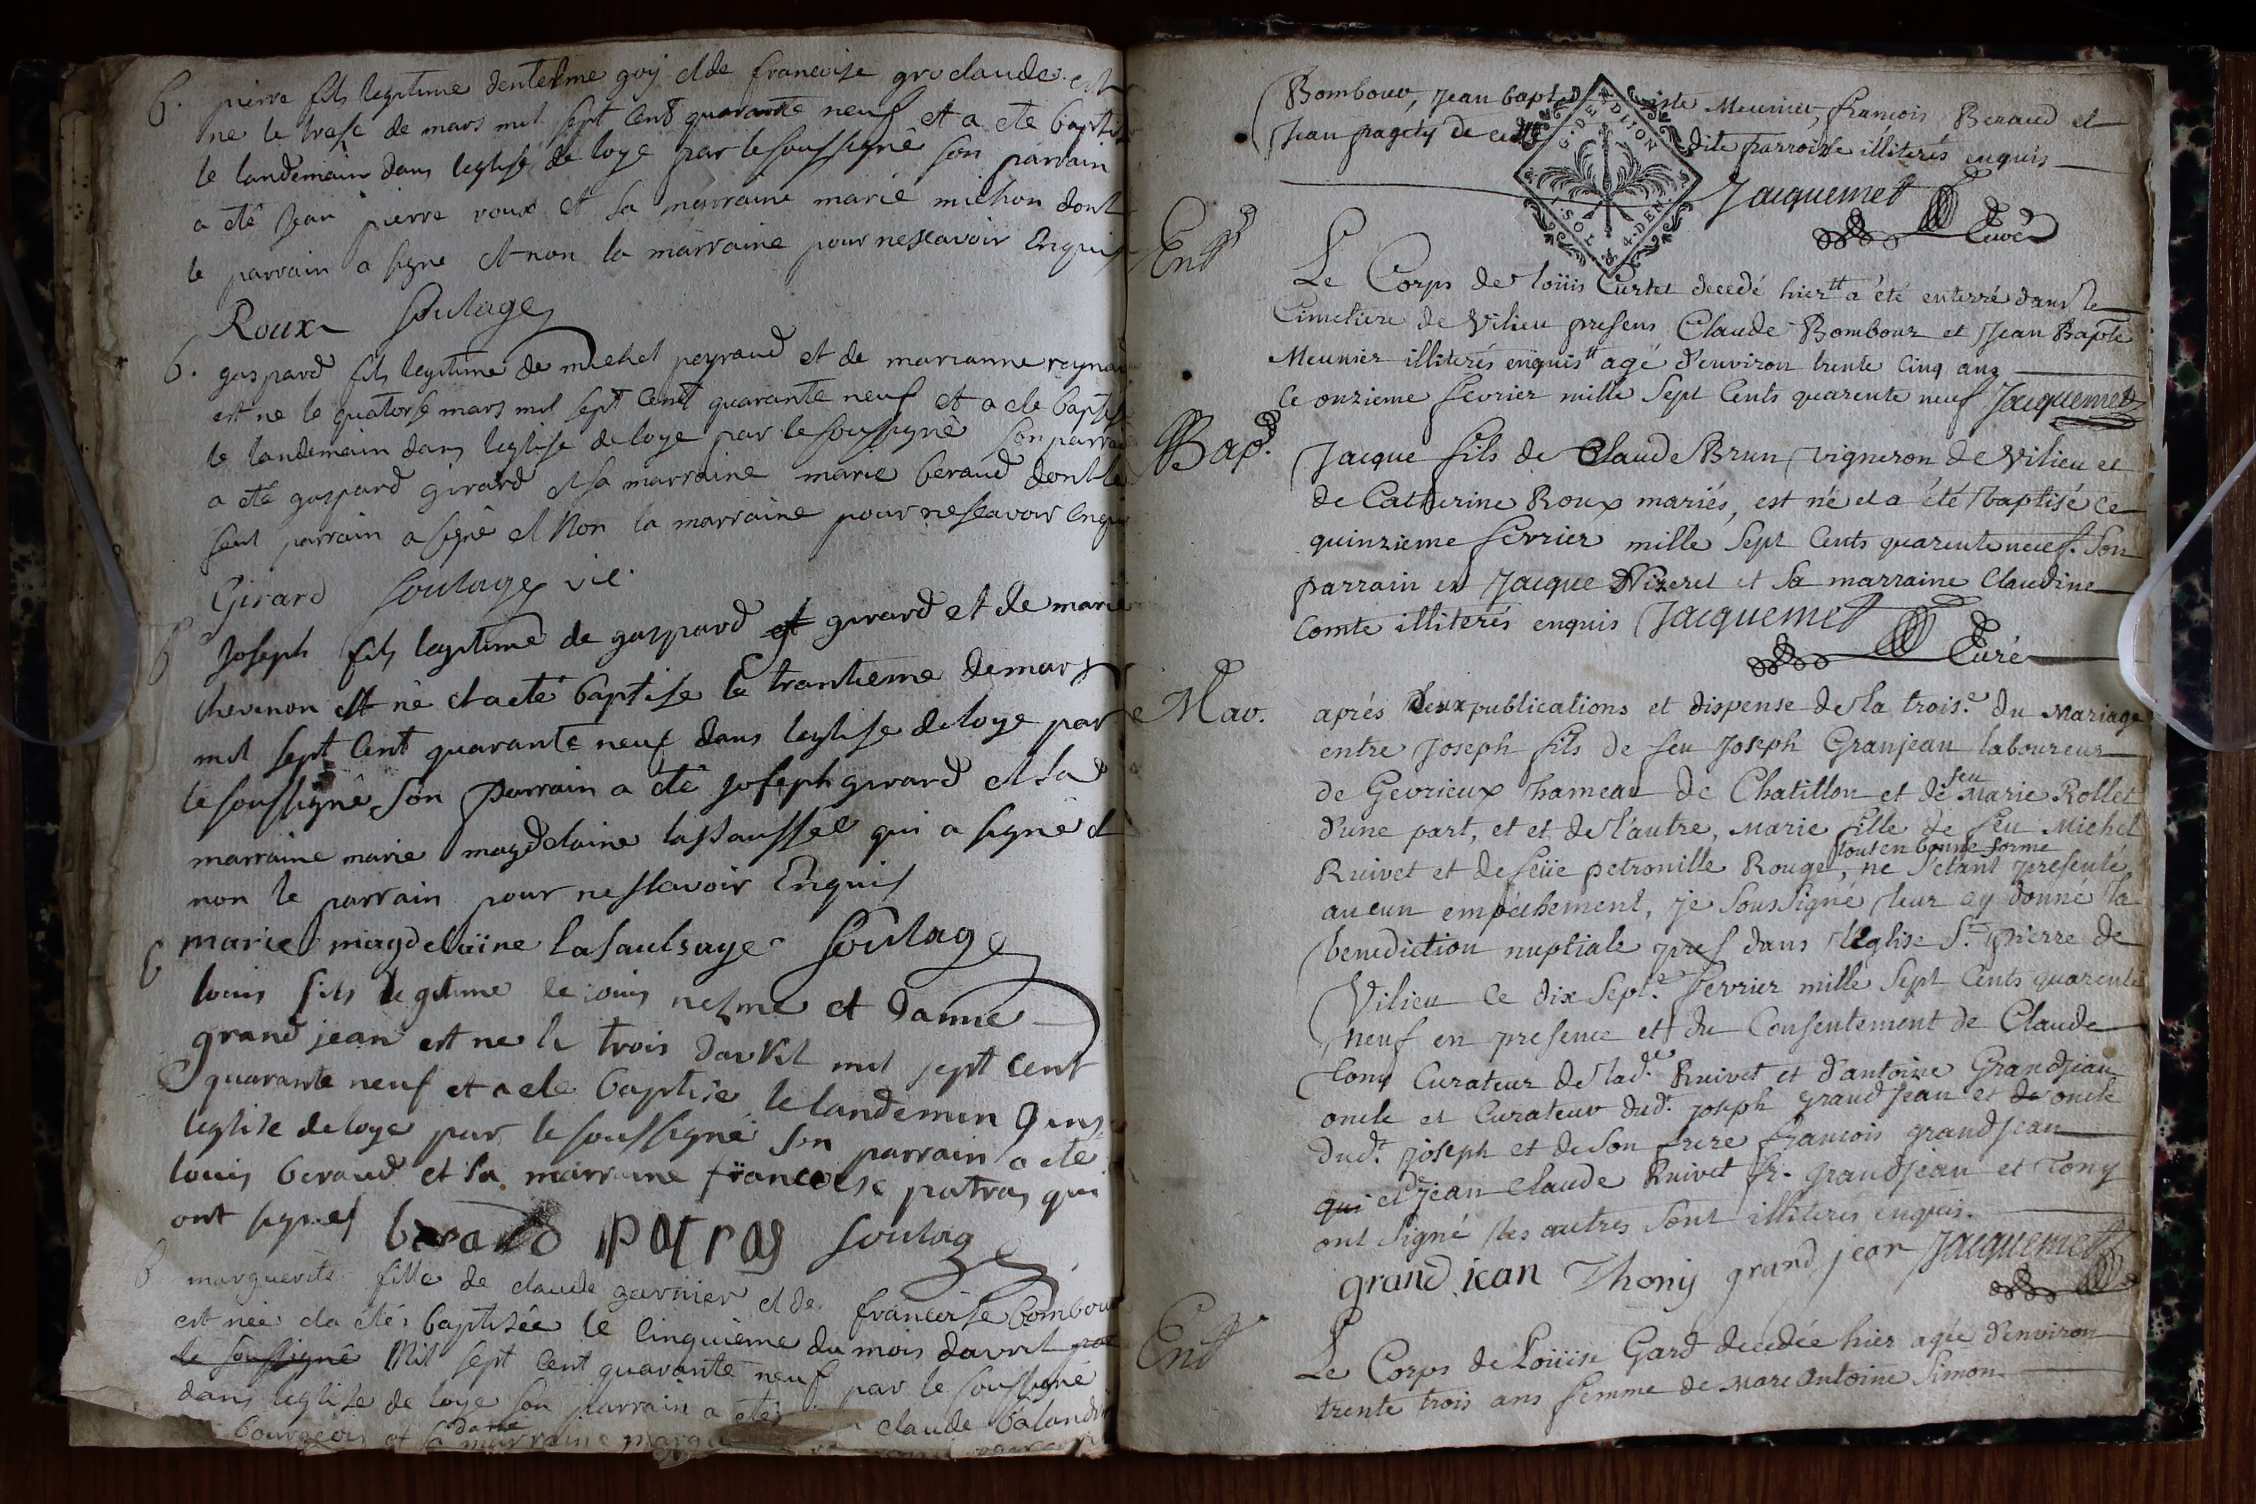 B. pierre fils legitime dentelme goy et de francoise groclaude est
ne le trese de mars mil sept cent quarante neuf et a ete baptise
le landemain dans leglise de loye par le soussigné son parrain
a eté Jean pierre roux et sa marraine marie michon dont
le parrain a signe et non la marraine pour nescavoir Enquis
Roux Soulage
B. gaspard fils legitime de michel peyraud et de marianne raynaud
est ne le quatorse mars mil sept cent quarante neuf et a ete baptise
le landemain dans leglise de loye par le soussigné son parrain
a eté gaspard girard et sa marraine marie beraud dont le
seul parrain a signé et Non la marraine pour nescavoir enquis
Girard Soulage vic.
B Joseph fils legitime de gaspard et girard et de marie
chevenon est né et a eté baptise le trantieme de mars
mil sept cent quarante neuf dans leglise de loye par
le soussigné son parrain a eté joseph girard et sa
marraine marie magdelaine lassaussee qui a signé et
non le parrain pour nescavoir Enquis
marie magdelaine lasaulsaye Soulage
B louis fils legitime de louis nesme et danne
grand jean est ne le trois davril mil sept cent
quarante neuf et a ete baptise le landemin dans
leglise de loye par le soussigné son parrain a ete
louis beraud et sa marraine francoise patras qui
ont signes beraud patras Soulage
B marguerite fille de claude garnier et de francoise bombour
est née et a été baptisée le Cinquieme du mois davril par
le soussigné Mil sept cent quarante neuf par le soussigné
dans leglise de loye son parrain a étés claude balandrin
bourgeois et sa marraine
Bombour, Jean bapt iste Meunier, francois Beraud et
Jean pagety de cette dite parroisse illiterés enquis
G. DE DIJON
SOL 4. DEN.
Jacquemet
Curé
Ent
Le Corps de loüis Curtet decedé hier a été enterré dans le
Cimetiere de Vilieu presens Claude Bombour et Jean Bapte
Meunier illiterés enquis agé d'environ trente cinq ans
Ce onzieme fevrier mille sept Cents quarente neuf Jacquemet
Bap. Jacque fils de Claude Brun vigneron de Vilieu et
de Catherine Roux mariés, est né et a été baptisé ce
quinzieme fevrier mille sept Cents quarente neuf. Son
parrain est Jacque Nizeret et sa marraine Claudine
Comte illiterés enquis Jacquemet
Curé
Mar. aprés deux publications et dispense de la trois.e du mariage
entre Joseph fils de feu Joseph Granjean laboureur
de Gevrieux hameau de Chatillon et de feu Marie Rollet
d'une part, et et de l'autre, Marie fille de feu Michel
Ruivet et de feüe petronille Rouge, tout en bonne forme ne s'etant presenté
aucun empéchement, je soussigné leur ay donné la
benediction nuptiale dans l'Eglise St. Pierre de
Vilieu Ce dix sept.e fevrier mille sept Cents quarente
neuf en presence et du Consentement de Claude
Tony Curateur de lad.e Ruivet et d'antoine Grandjean
oncle et Curateur dud.t joseph grandjean et de oncle
dud.t joseph et de son frere francois grandjean
qui et Jean Claude Ruivet fr. grandjean et Tony
ont signé les autres sont illiterés enquis.
grand jean Thony grand jean Jacquemet
Ent
Le Corps de Loüise Gard decedée hier agée d'environ
trente trois ans femme de Marc Antoine Simon